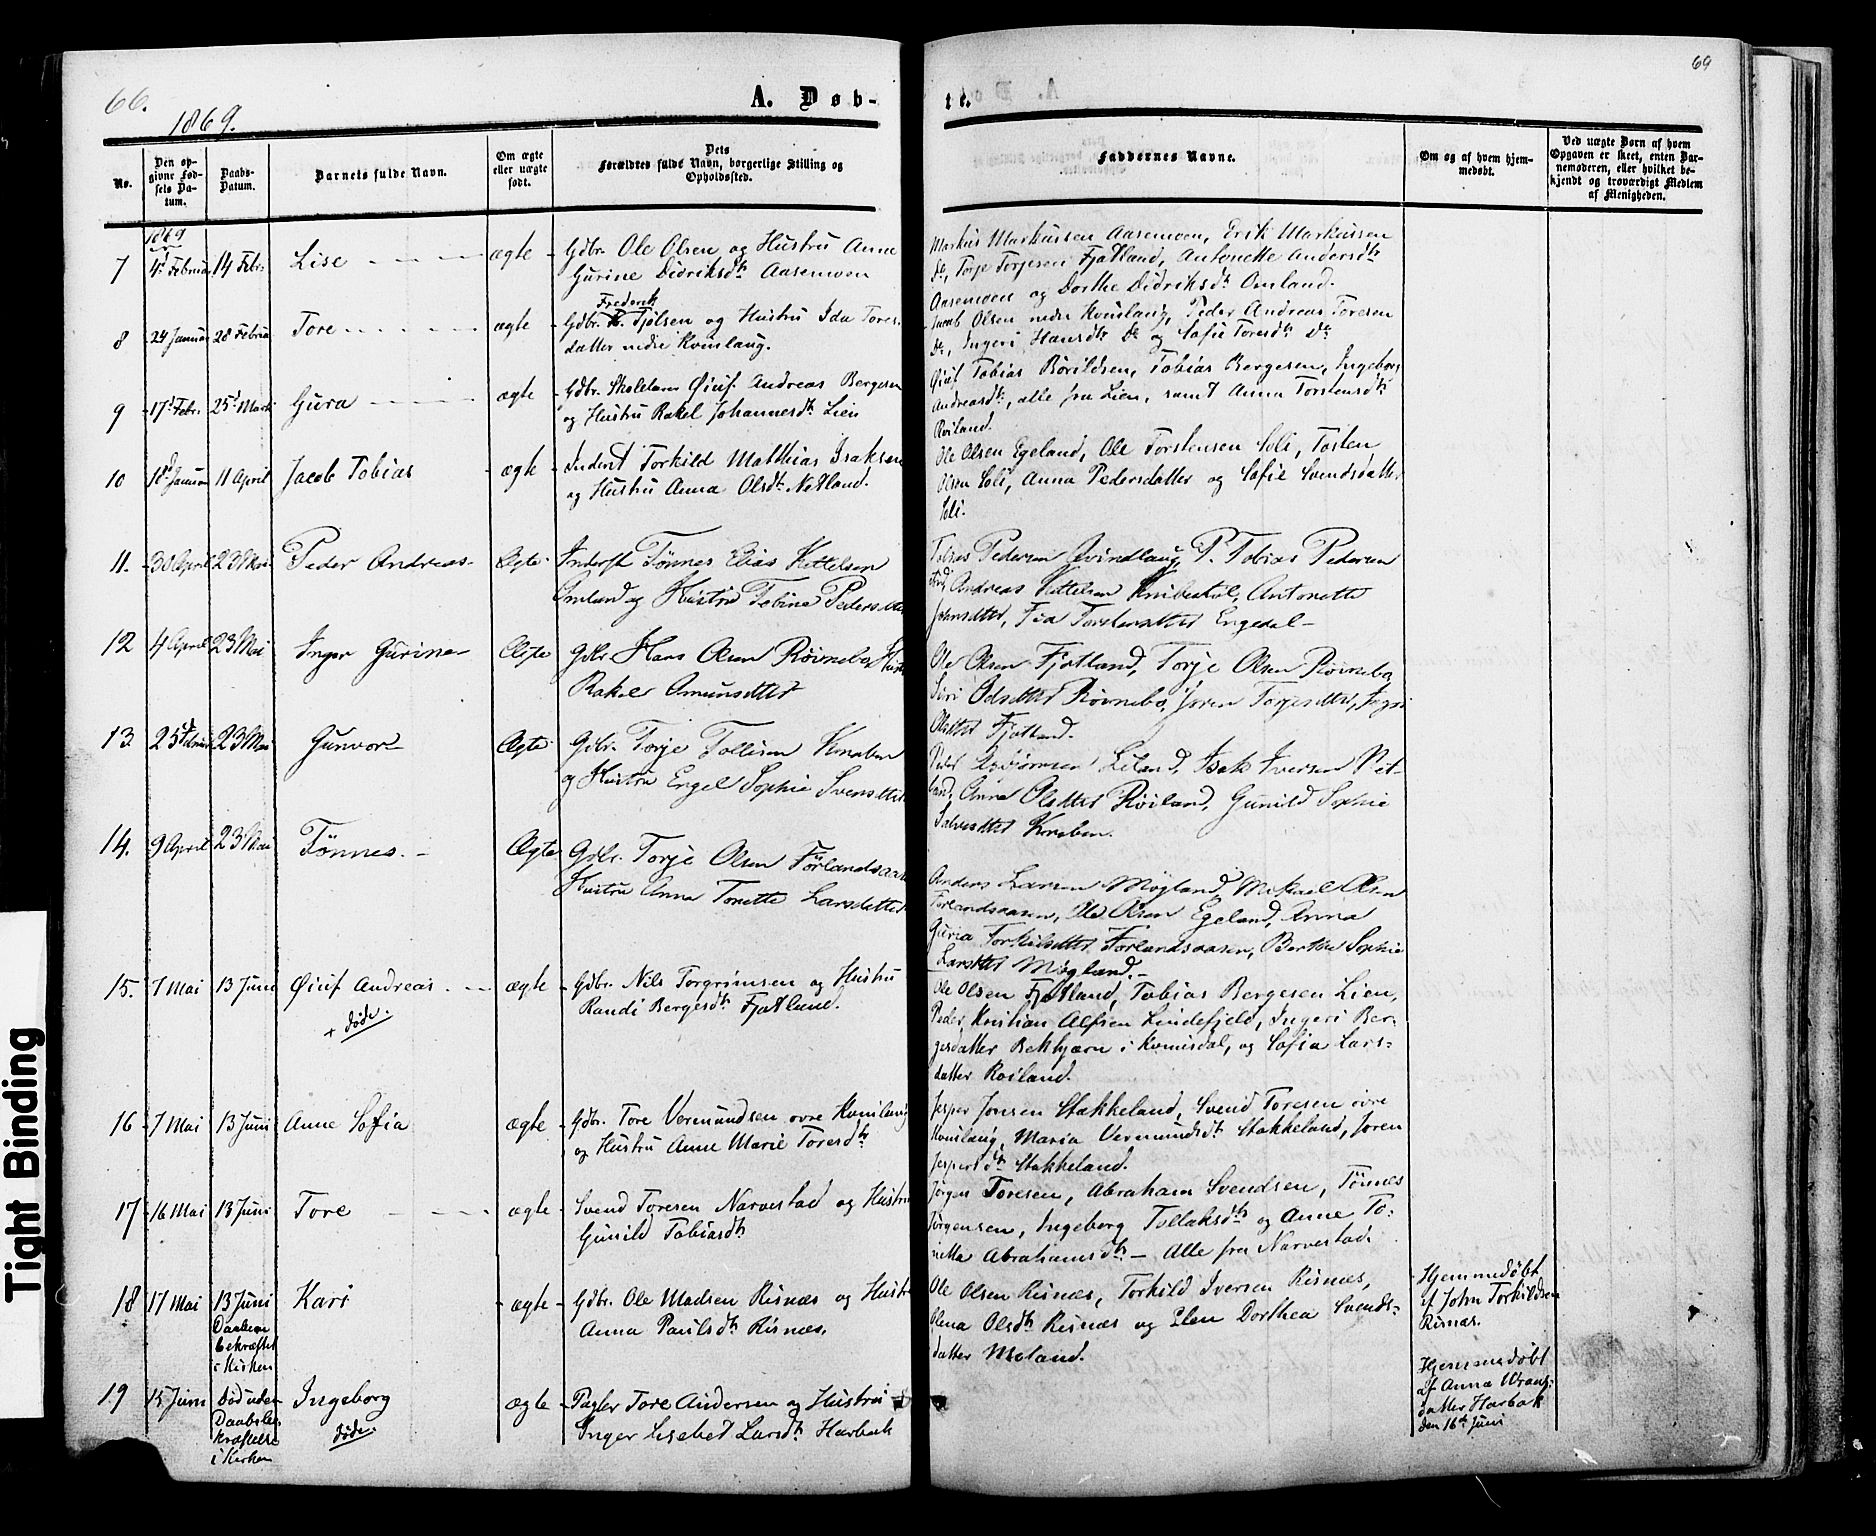 66.
1869.
A. Døb-
te.
69
No.
Den op-
givne Fød-
sels Da-
tum.
Daabs-
Datum.
Barnets fulde Navn.
Om ægte
eller uægte
født.
Dets
Forældres fulde Navn, borgerlige Stilling og
Opholdssted.
Faddernes Navne.
Om og af hvem hjem-
medøbt.
Ved uægte Børn af hvem
Opgaven er skeet, enten Bar-
nemoderen, eller hvilket be-
kjendt og troværdigt Medlem
af Menigheden.
1869
7 4de Februar 14 Febr. Lise ægte
Gdbr. Ole Olsen og Hustru Anne
Gurine Didriksdtr Aasemoen
Markus Markussen Aasemoen, Erik Markussen
Do, Torje Torjesen Fjotland, Antonette Andersdtr
Aasemoen og Dorthe Didriksdtr Omland.
8 24 Januar 28 Februar Tore ægte
Frederik
Gdbr. Tjølsen og Hustru Ida Tores-
datter nedre Kvinlaug.
Jacob Olsen nedre Kvinlaug, Peder Andreas Toresen
Do, Ingeri Hansdtr Do og Sofie Toresdtr Do
9 17 Febr. 25 Marts Gura ægte
Gdbr. Skolelærer Øiuf Andreas Bergesen
og Hustru Rakel Johannesdtr Lien
Øiuf Tobias Børildsen, Tobias Bergesen, Ingeborg
Andreasdtr, alle fra Lien, samt Anna Torstensdtr
Røiland.
10 18 Januar 11 April Jacob Tobias ægte
Inderst Torkild Matthias Isaksen
og Hustru Anna Olsdtr Netland.
Ole Olsen Egeland, Ole Torstensen Soli, Tosten
Olsen Soli, Anna Pedersdatter og Sofie Svendsdatter
Soli.
11. 30 April 23 Mai Peder Andreas Ægte
Inderst Tønnes Elias Kettelsen
Omland og Hustru Tobine Pedersdatter
Pedersen Kvindlaug, P. Tobias Pedersen
Andreas Kettelsen Knibestøl, Antonette
Johnsdatter, Fia Torstensdatter Engedal
12 4 April 23 Mai Inger Gurine Ægte
Gdbr. Hans Olsen Røvnebo, Hustru
Rakel Amunsdatter
Ole Olsen Fjotland, Torje Olsen Røvnebo
Siri Odsdatter Røvnebo, Joren Torjesdatter, Ingri
Olsdatter Fjotland.
13 25 Februar 23 Mai Gunvor Ægte
Gdbr. Torje Tollisen Knaben
og Hustru Engel Sophie Svensdatter
Peder Asbjørnsen Liland, Isak Iversen Net-
land, Anna Olsdatter Røiland, Gunild Sophie
Salvesdatter Knaben.
14. 9 April 23 Mai Tønnes. Ægte
Gdbr. Torje Olsen Førlandsaasen
Hustru Anna Tonette Larsdatter
Anders Larsen Møgland, Mikael Olsen
Førlandsaasen, Ole Olsen Egeland, Anna
Guria Torkilsdatter Førlandsaasen, Berthe Sophie
Larsdatter Møgland.
15. 7 Mai 13 Juni Øiuf Andreas ægte
+ døde.
Gdbr. Nils Torgrimsen og Hustru
Randi Bergesdtr Fjotland.
Ole Olsen Fjotland, Tobias Bergesen Lien,
Peder Kristian Alfsen Lindefjeld, Ingeri Ber-
gesdatter Bekhjørn i Kvinisdal, og Sofia Lars-
datter Roiland.
16 7 Mai 13 Juni Anne Sofia ægte
Gdbr. Tore Vermundsen øvre Kvinlaug
og Hustru Anne Marie Toresdtr
Jesper Jonsen Stakkeland, Svend Toresen øvre
Kvinlaug, Maria Vermundsdtr Stakkeland, Joren
Jespersdtr Stakkeland.
17 16 Mai 13 Juni Tore ægte
Svend Toresen Narvestad og Hustru
Gunild Tobiasdtr
Jørgen Toresen, Abraham Svendsen, Tønnes
Jørgensen, Ingeborg Tollaksdtr og Anne To-
netta Abrahamsdtr - Alle fra Narvestad.
18 17 Mai 13 Juni
Daaben
bekræftet
i Kirken
Kari ægte
Gdbr. Ole Madsen Risnæs og Hustru
Anna Paulsdtr Risnæs.
Ole Olsen Risnæs, Torkild Iversen Risnæs,
Olena Olsdtr Risnæs og Elen Dorthea Svends-
datter Moland.
Hjemmedøbt
af John Torkildsen
Risnæs.
19 15 Juni Død uden
Daabsbe-
kræftelse
i Kirken
Ingeborg ægte
døde.
Pagter Tore Andersen og Hustru
Inger Lisebet Larsdtr Harbak
Hjemmedøbt
af Anna
datter Harbak
den 16de Juni
Tight Binding